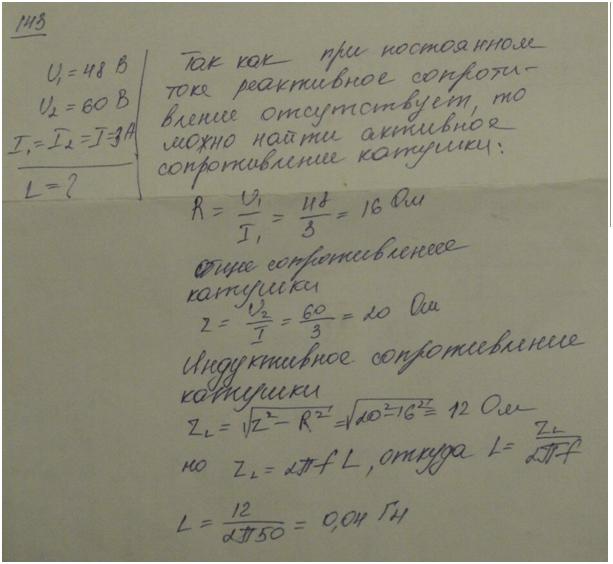 143
U₁ = 48 В
U₂ = 60 В
I₁ = I₂ = I = 3А
L = ?
Так как при постоянном
токе реактивное сопроти-
вление отсутствует, то
можно найти активное
сопротивление катушки:
R = U₁/I₁ = 48/3 = 16 Ом
сопротивление
катушки
Z = U₂/I = 60/3 = 20 Ом
Индуктивное сопротивление
катушки
Z_L = √(Z² - R²) = √(20² - 16²) = 12 Ом
но Z_L = 2πf L, откуда L = Z_L/2πf
L = 12/2π50 = 0,04 Гн